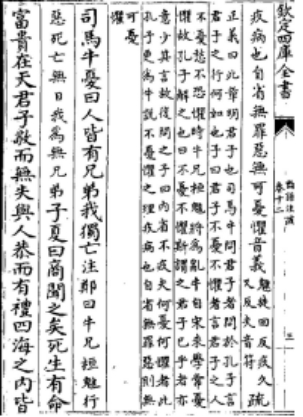 欽定四庫全書
論語注疏
卷十二
三
疚病也自省無罪惡無可憂懼音義
魋徒回反疚久
又反夫音符
疏
正義曰此章明君子也司馬牛問君子者問於孔子言
君子之行何如也子曰君子不憂不懼者言君子之人
不憂愁不恐懼時牛兄桓魋將為亂牛自宋來學常憂
懼故孔子解之也曰不憂不懼斯謂之君子已乎者亦
意少其言故復問之子曰內省不疚夫何憂何懼者此
孔子更為牛說不憂懼之理疚病也自省無罪惡則無
可憂
懼
司馬牛憂曰人皆有兄弟我獨亡注鄭曰牛兄桓魋行
惡死亡無日我為無兄弟子夏曰商聞之矣死生有命
富貴在天君子敬而無失與人恭而有禮四海之內皆